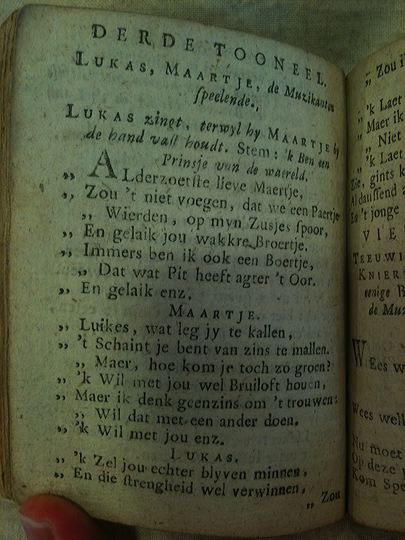 DERDE TOONEEL.
LUKAS, MAARTJE, de Muzikanten
speelende.
LUKAS zingt, terwyl hy MAARTJE by
de hand vast houdt. Stem: 'k Ben een
Prinsje van de waereld.
„ ALderzoetste lieve Maertje,
„ Zou 't niet voegen, dat we een Paertje
„ Wierden, op myn Zusjes spoor,
„ En gelaik jou wakkre Broertje.
„ Immers ben ik ook een Boertje,
„ Dat wat Pit heeft agter 't Oor.
„ En gelaik enz.
MAARTJE.
„ Luikes, wat leg jy te kallen,
„ 't Schaint je bent van zins te mallen.
„ Maer, hoe kom je toch zo groen?
„ 'k Wil met jou wel Bruiloft houen,
„ Maer ik denk geenzins om 't trouwen:
„ Wil dat met een ander doen.
„ 'k Wil met jou enz.
LUKAS.
„ 'k Zel jou echter blyven minnen,
„ En die strengheid wel verwinnen,
„ Zou
„ Zou i
„ 'k Laet
„ Maer ik
„ Niet
„ 'k Laet
Zie, gints k
Al danssend a
En 't jonge
VIE
TEEUWI
KNIER
eenige B
de Muz
Wees w
Wees welk
Nu moet
Op deze p
Kom Spe